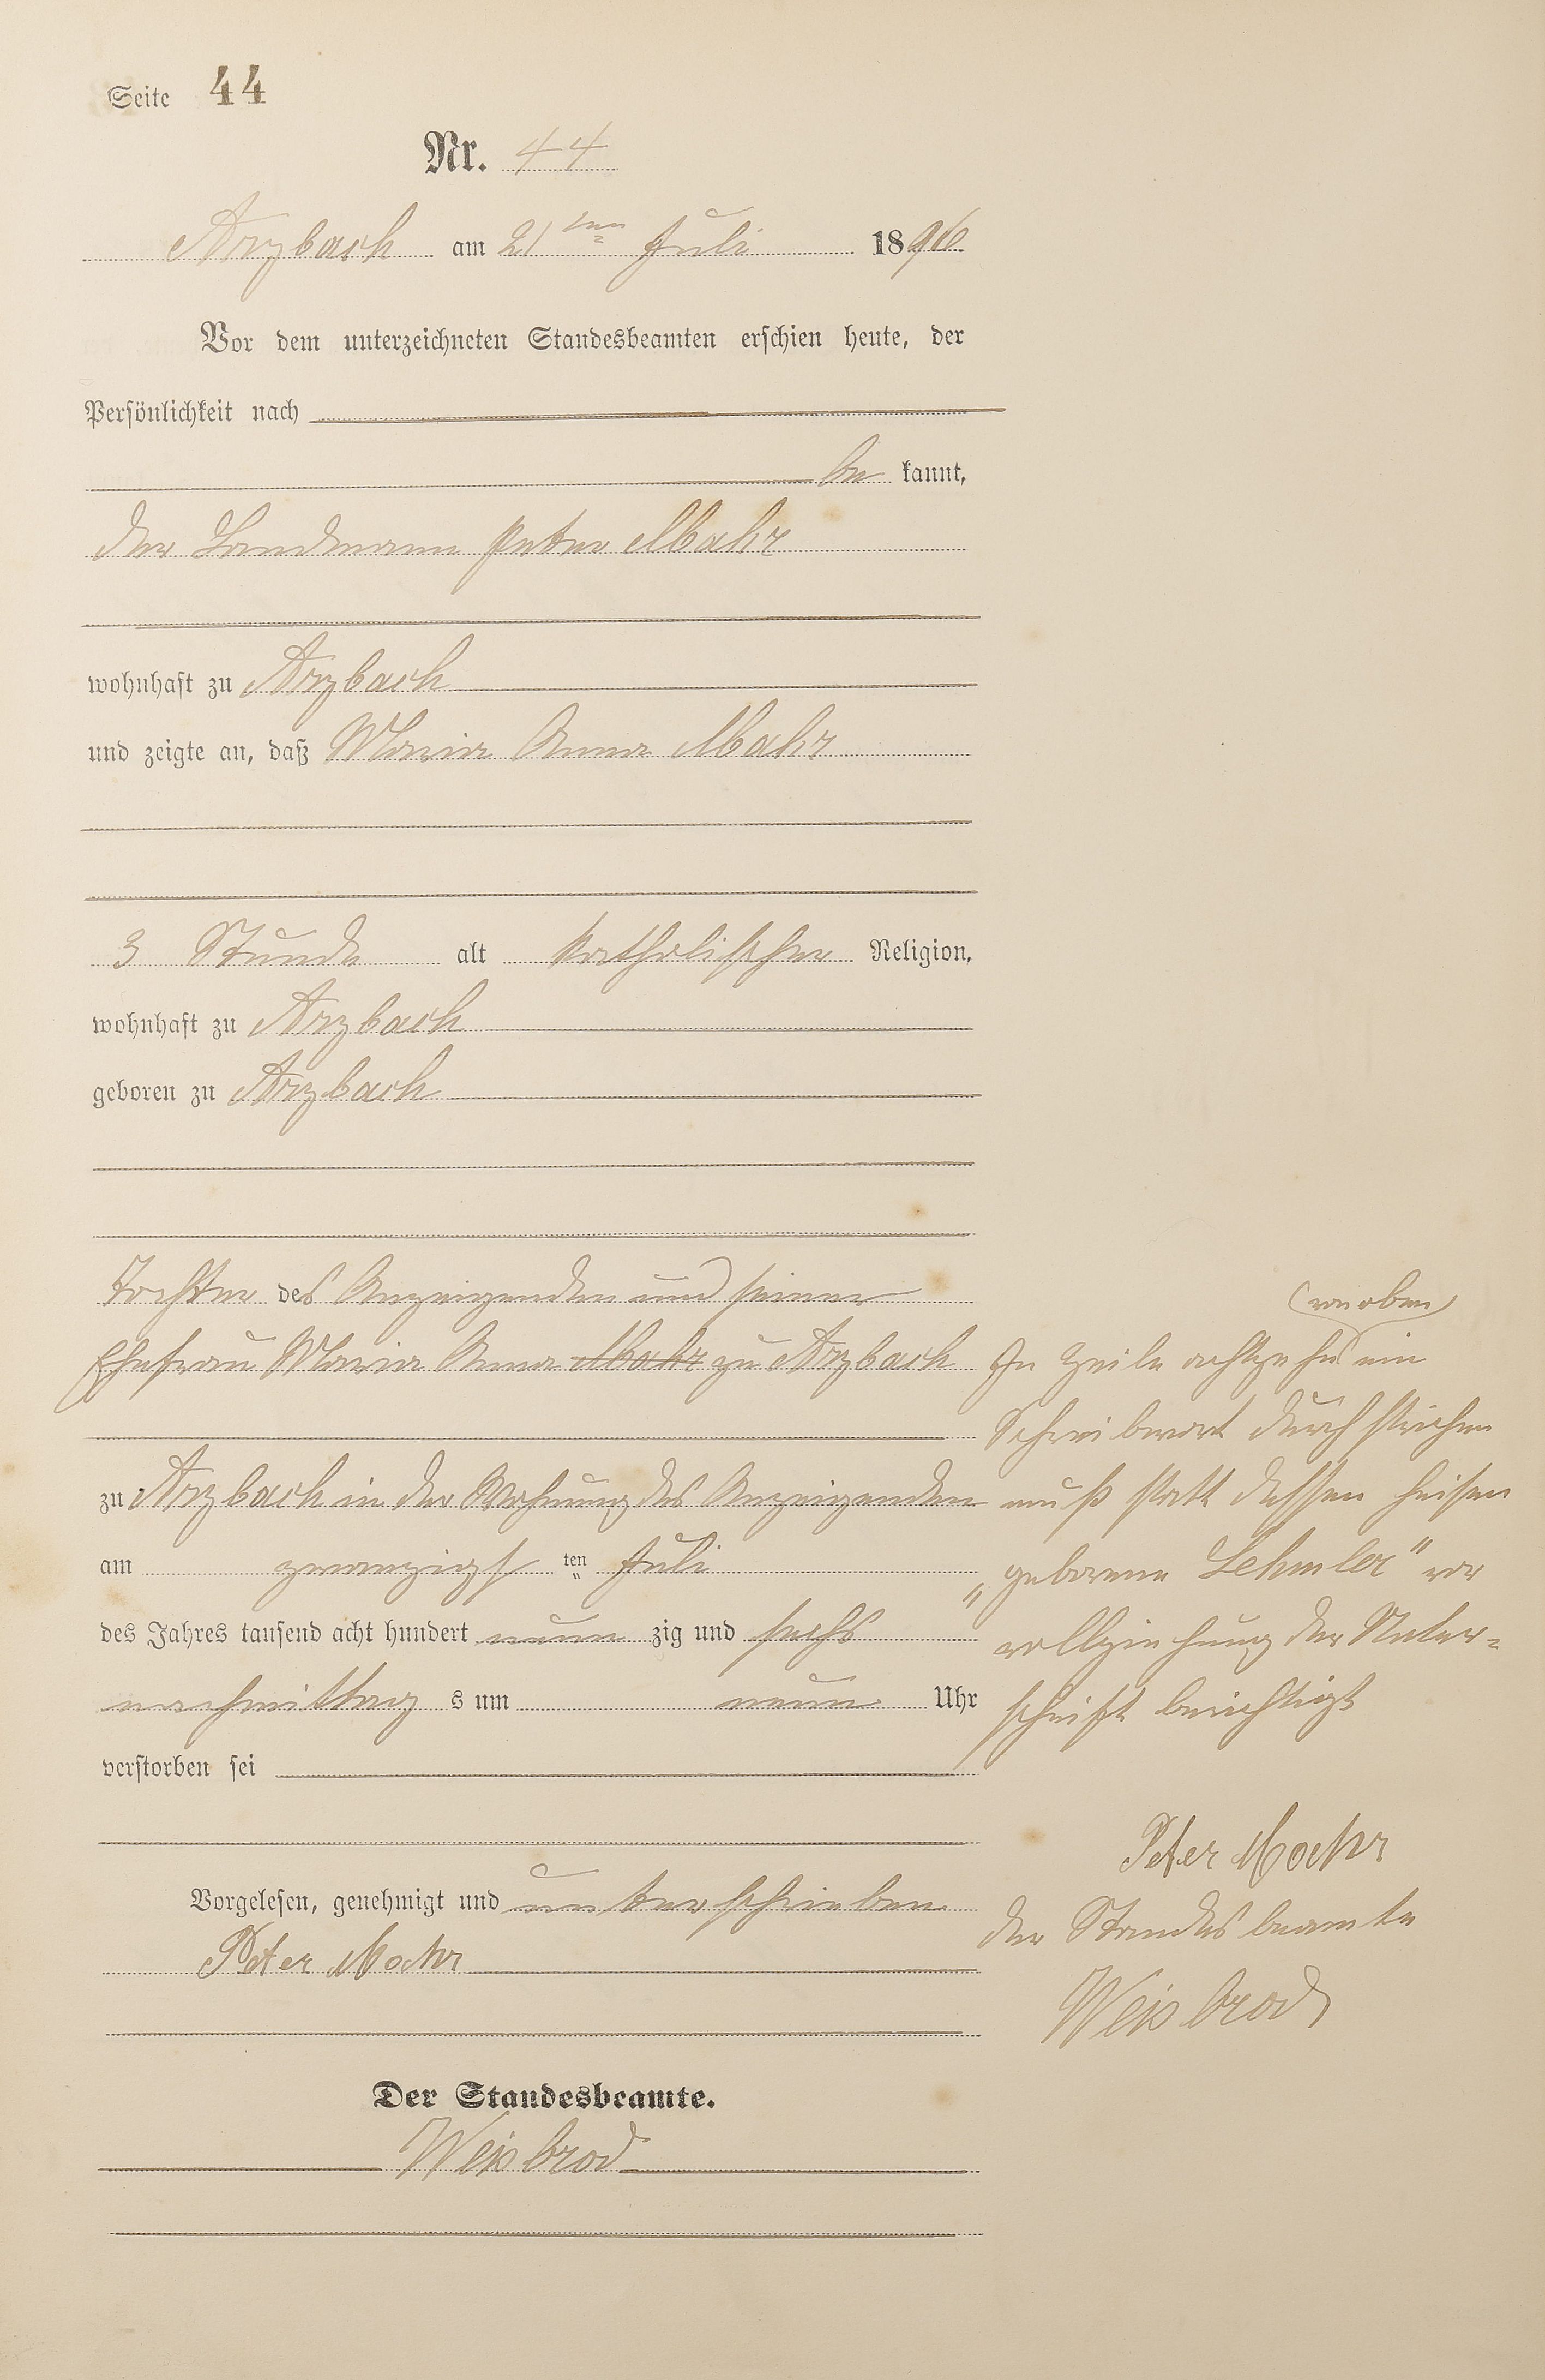 Seite 44
Nr. 44
Arzbach am 21ten Juli 1896
Vor dem unterzeichneten Standesbeamten erschien heute, der
Persönlichkeit nach
be kannt,
der Landmann Peter Mahr
wohnhaft zu Arzbach
und zeigte an, daß Maria Anna Mahr
3 Stunde alt katholischer Religion,
wohnhaft zu Arzbach
geboren zu Arzbach
Tochter des Anzeigenden und seiner
Ehefrau Maria Anna Mahr zu Arzbach
zu Arzbach in der Wohnung des Anzeigenden
am zwanzigsten Juli
des Jahres tausend acht hundert neun zig und sechs
nachmittag s um neun Uhr
verstorben sei
Vorgelesen, genehmigt und unterschrieben
Peter Mahr
Der Standesbeamte.
Weisbrod
(von oben)
In Zeile achtzehn ein
Schreibwort durchstrichen
muß statt dessen heisen
„geborene Lehmler" vor
vollziehung der Unter=
schrift berichtigt
Peter Mahr
der Standesbeamte
Weisbrod